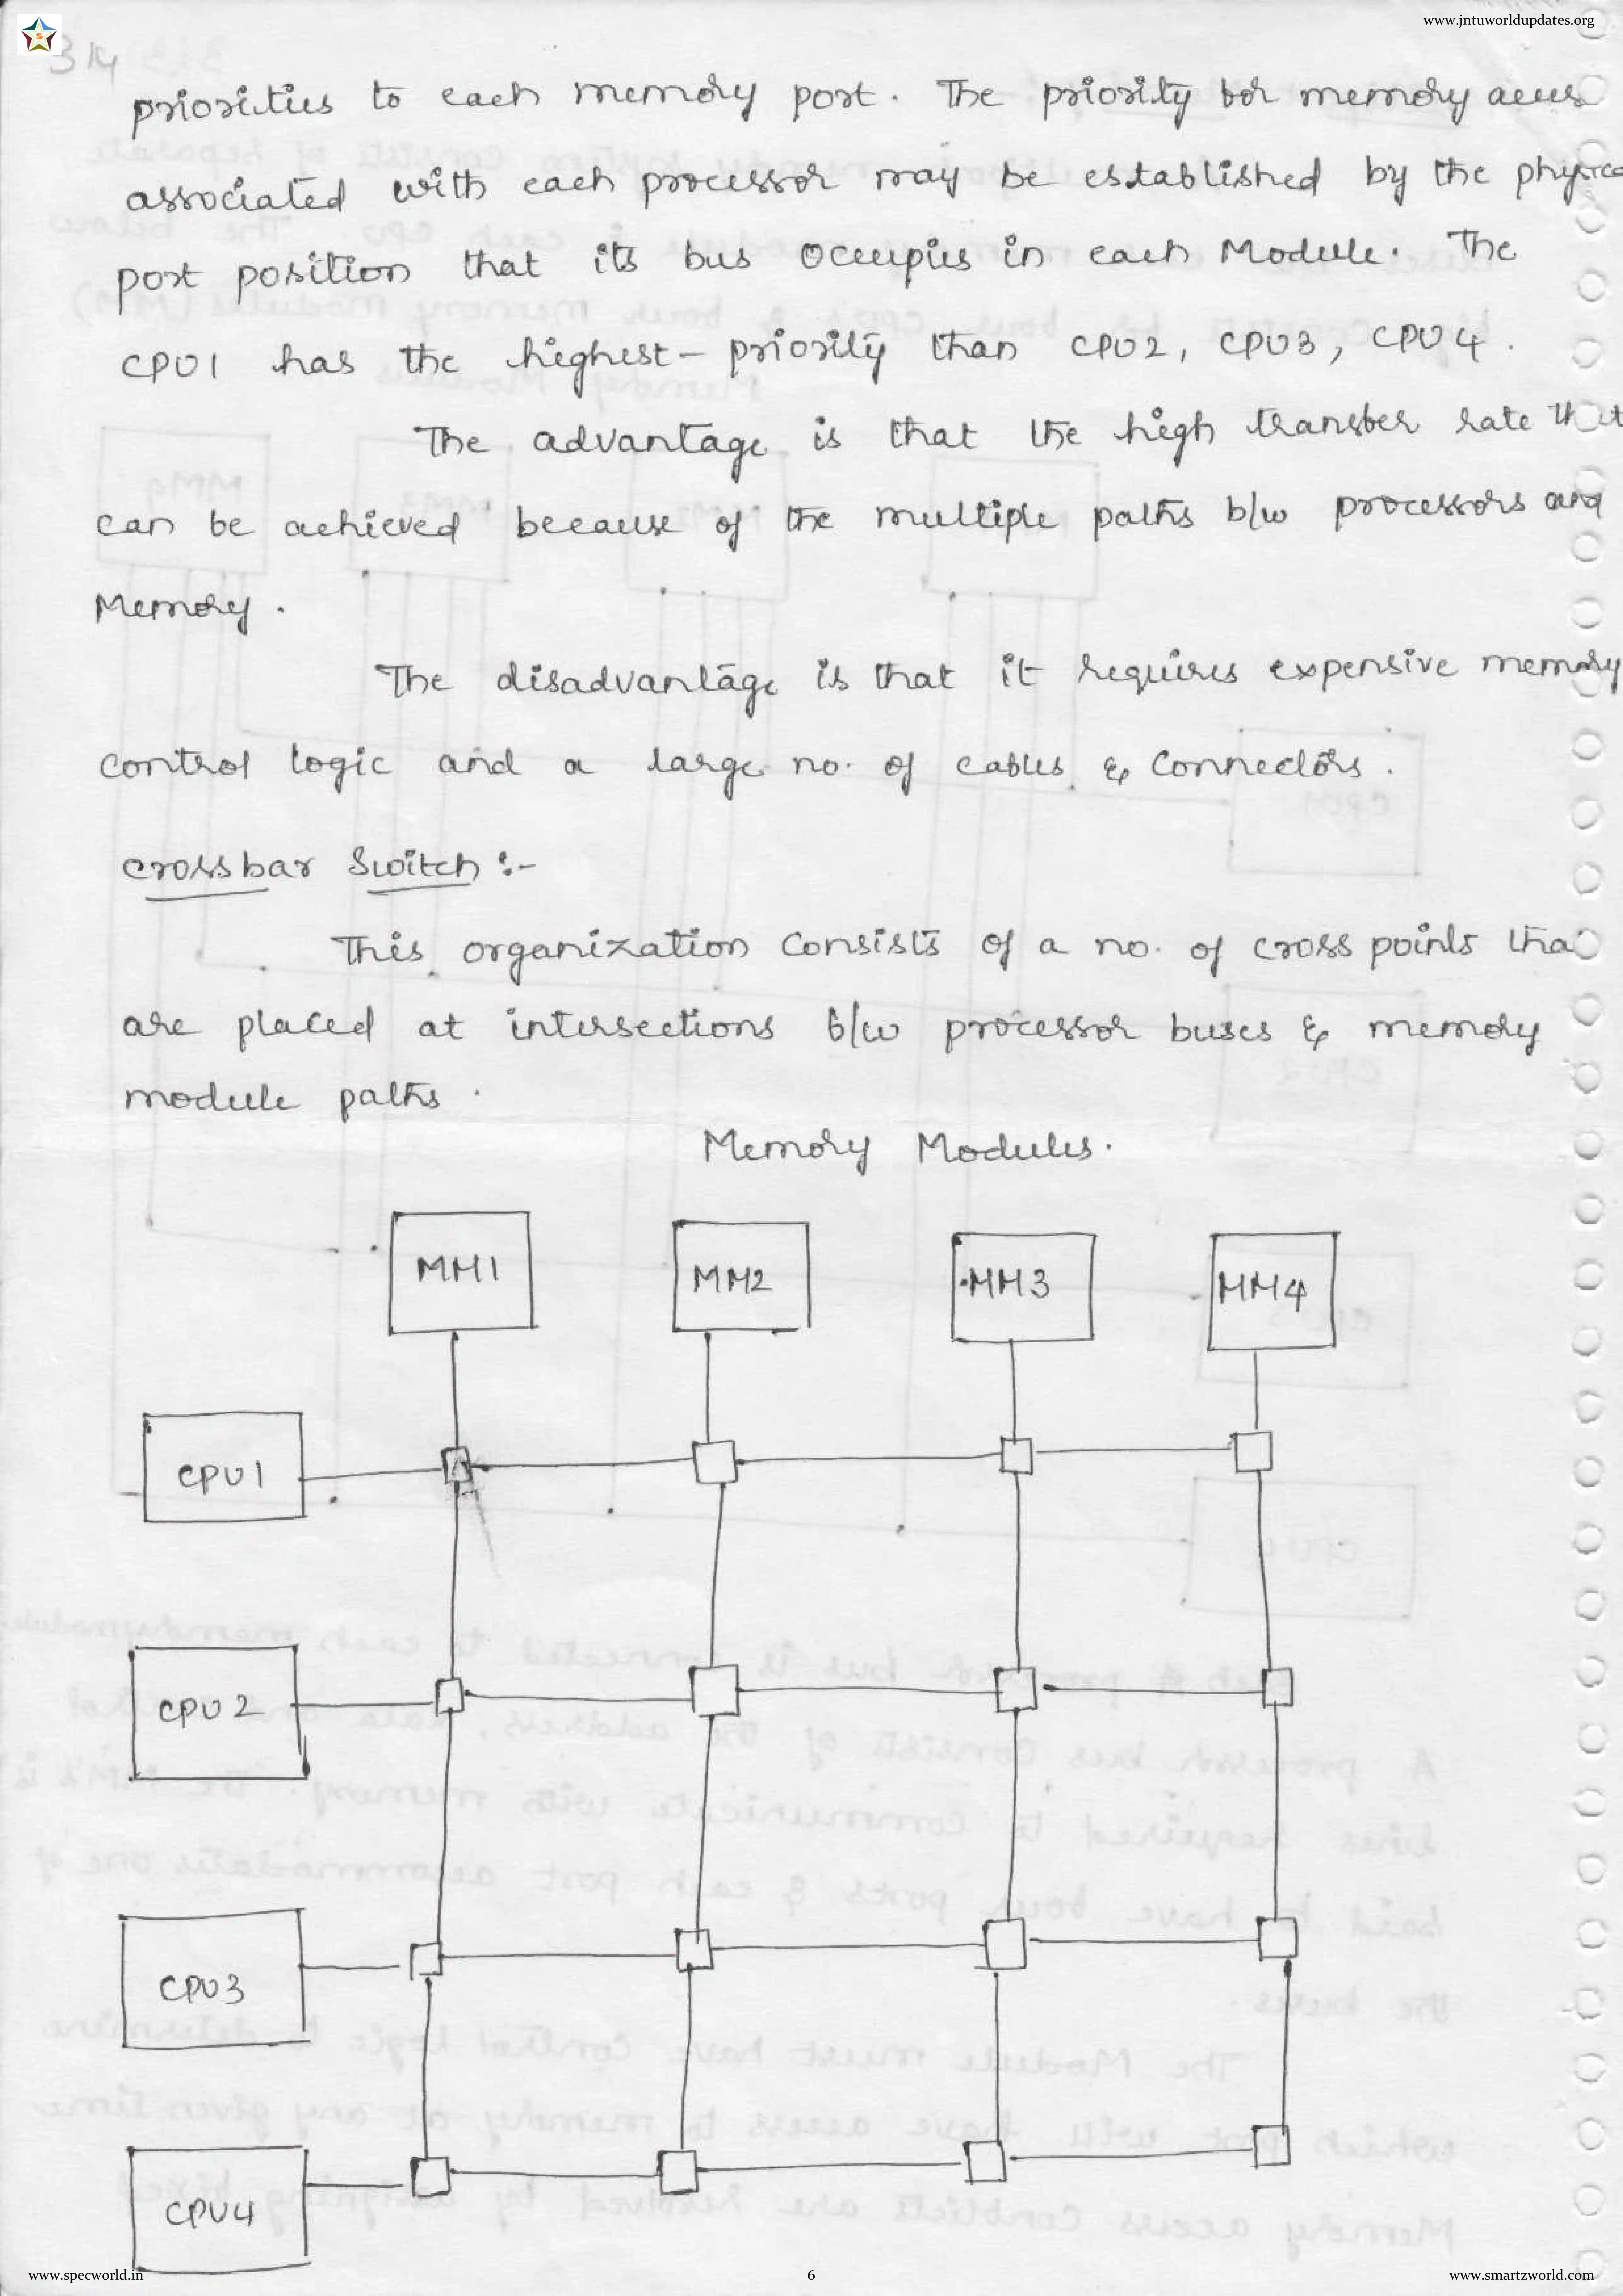 www.jntuworldupdates.org
314
priorities to each memory port. The priority for memory acces
associated with each processor may be established by the physica
port position that its bus occupies in each Module. The
CPU1 has the highest priority than CPU2, CPU3, CPU4.
The advantage is that the high transfer rate that
can be achieved because of the multiple paths b/w processors and
Memory.
The disadvantage is that it requires expensive memory
control logic and a large no. of cables & Connectors.
crossbar Switch :-
This organization consists of a no. of cross points tha
are placed at intersections b/w processor buses & memory
module paths.
Memory Modules.
MM1 MM2 MM3 MM4
CPU1
CPU2
CPU3
CPU4
www.specworld.in 6 www.smartzworld.com